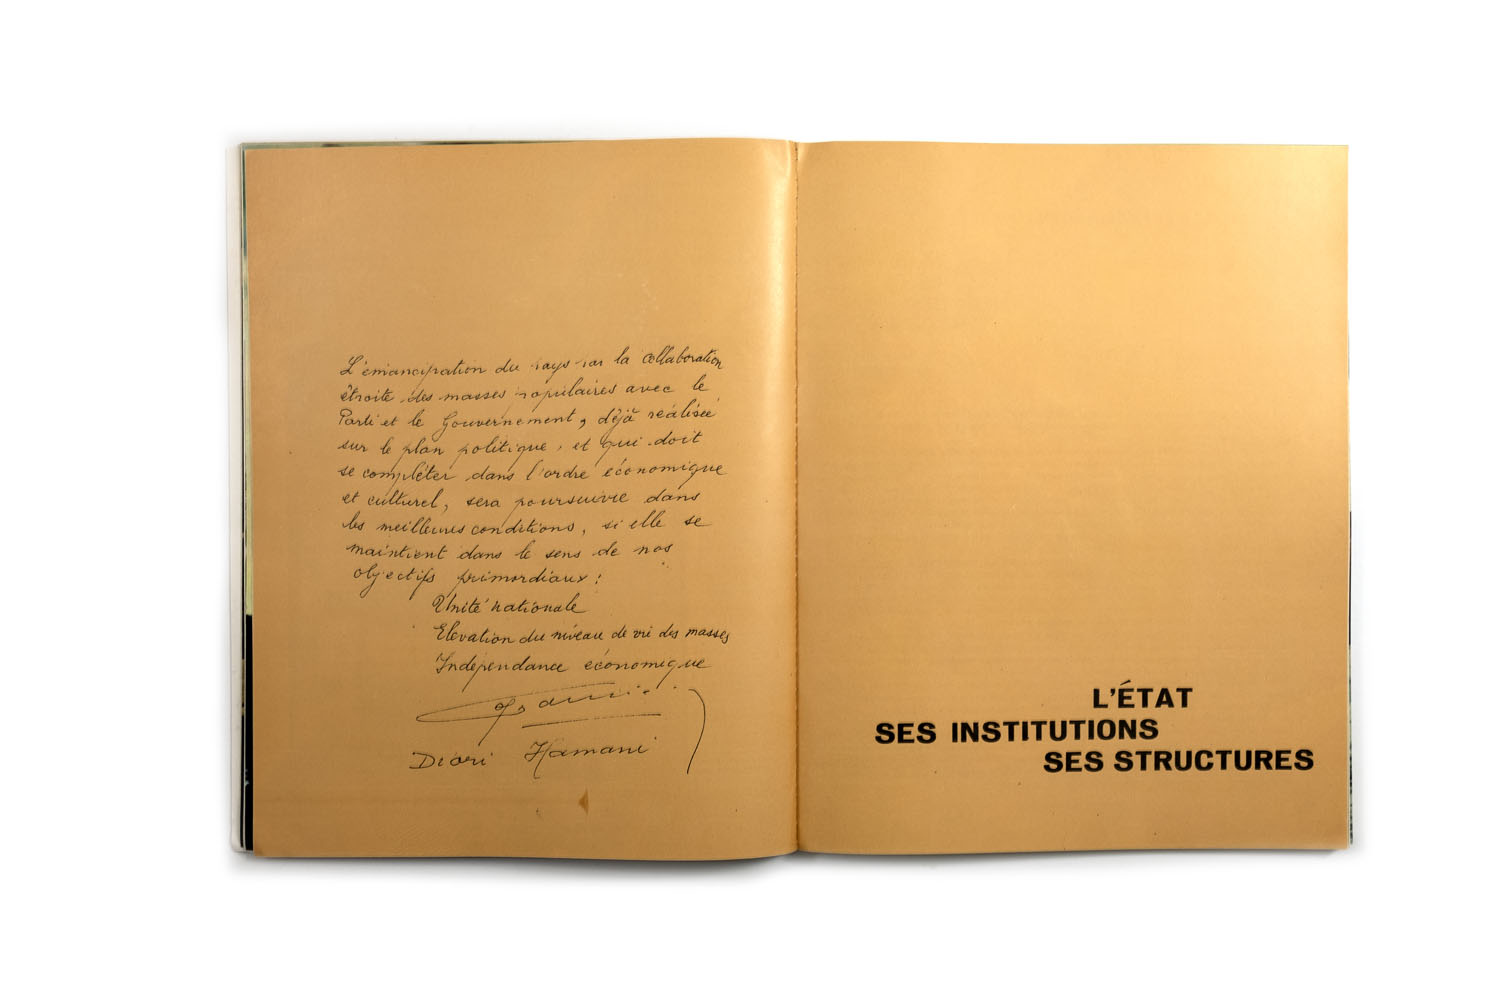 L'émancipation du pays par la collaboration
étroite des masses populaires avec le
Parti et le Gouvernement, déjà réalisée
sur le plan politique, et qui doit
se compléter dans l'ordre économique
et culturel, sera poursuivie dans
les meilleures conditions, si elle se
maintient dans le sens de nos
objectifs primordiaux :
Unité nationale
Elevation du niveau de vie des masses
Indépendance économique
Diori Hamani
L'ÉTAT
SES INSTITUTIONS
SES STRUCTURES